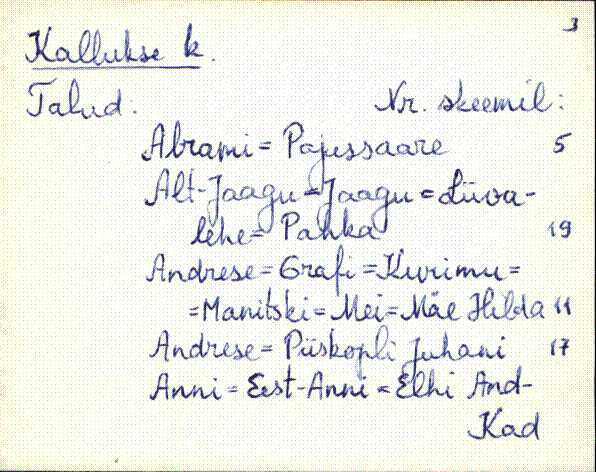 3
Kallukse k.
Talud. Nr. skeemil:
Abrami = Pajussaare 5
Alt-Jaagu = Jaagu = Liiva-
lehe = Pahka 19
Andrese = Grafi = Kurimu =
= Manitski = Mei = Mäe Hilda 11
Andrese = Piiskopli Juhani 17
Anni = Eest-Anni = Elhi And-
Kad